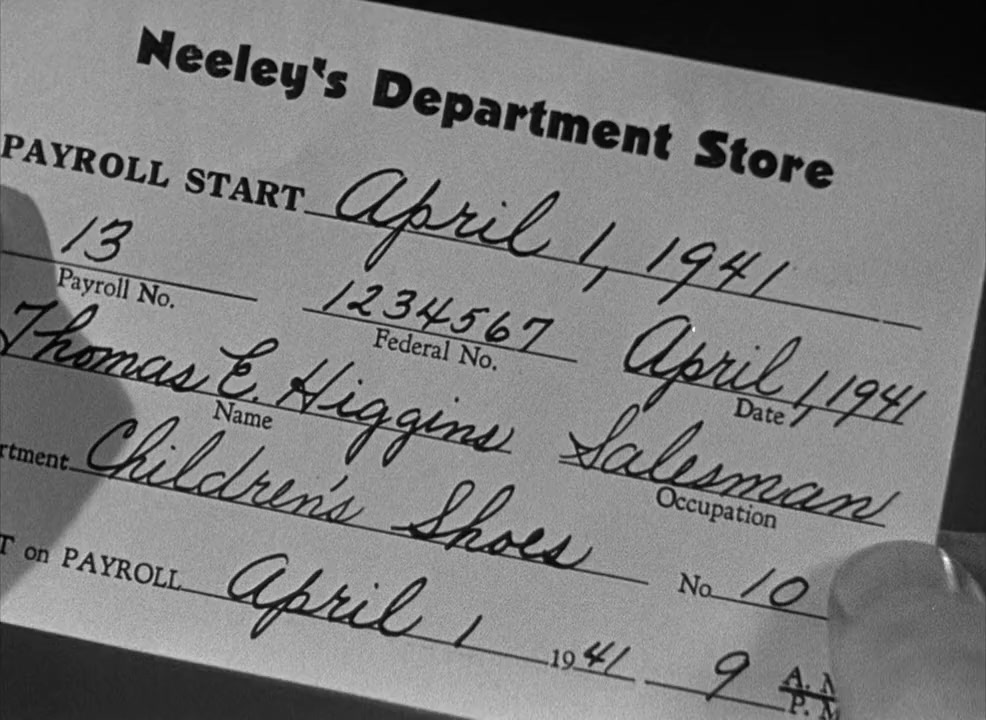 Neeley's Department Store
PAYROLL START April 1, 1941
13 1234567 April 1, 1941
Payroll No. Federal No. Date
Thomas E. Higgins Salesman
Name Occupation
Children's Shoes No. 10
on PAYROLL April 1 1941 9 A.
P.